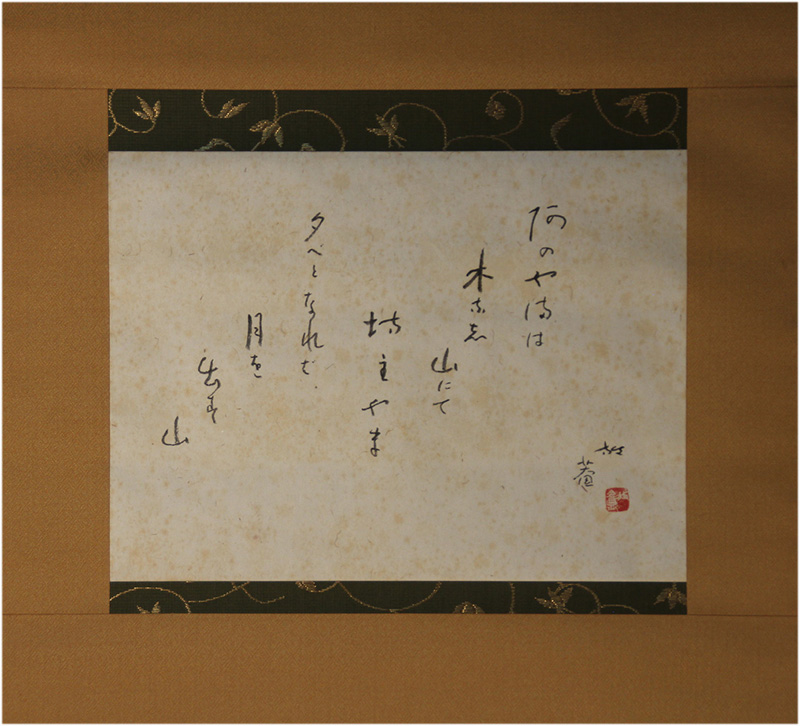 阿のやまは
木なし
山にて
坊主やま
夕べとなれば
月を
出す
山
放
菴